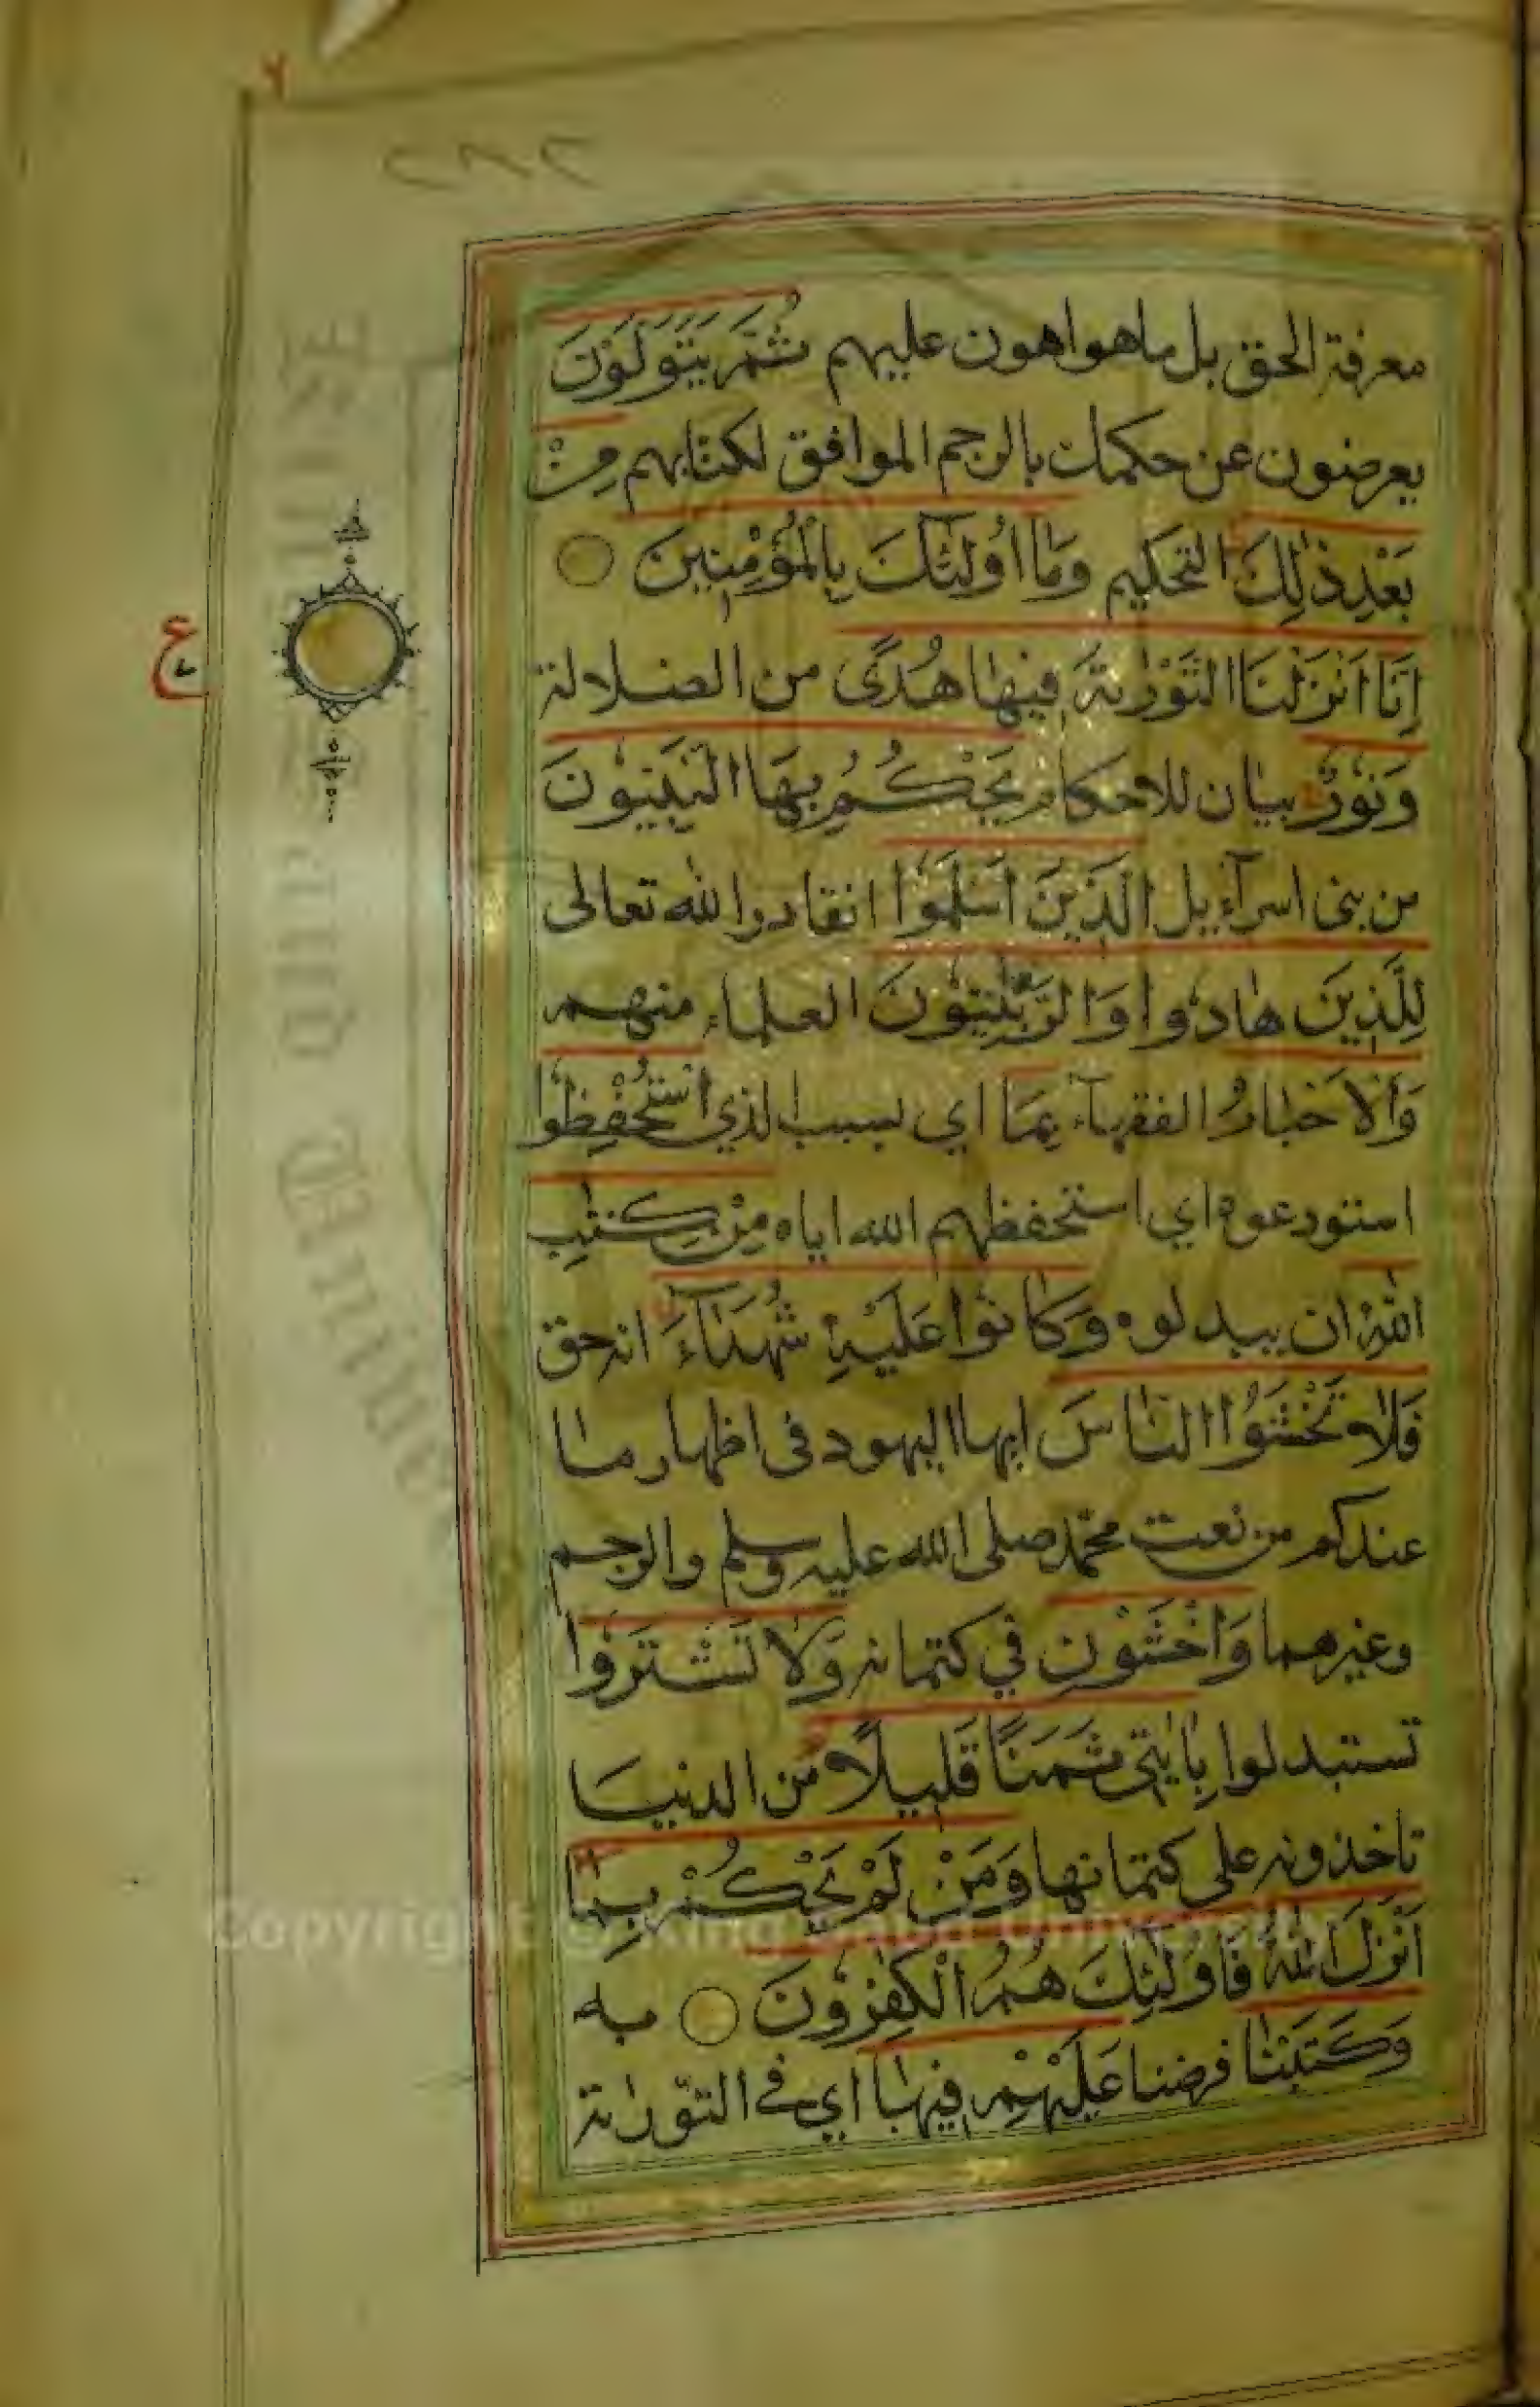 ٢٨٢
معرفة الحق بل ما هو اهون عليهم ثُمَّ يَتَوَلَّوْنَ
يعرضون عن حكمك بالرجم الموافق لكتابهم مِنْ
بَعْدِ ذٰلِكَ التحكيم وَمَا اُولٰٓئِكَ بِالْمُؤْمِنِينَ
اِنَّا اَنْزَلْنَا التَّوْرٰىةَ فِيهَا هُدًى من الضلالة
وَنُورٌ بيان للاحكام يَحْكُمُ بِهَا النَّبِيُّونَ
من بنى اسرآءيل الَّذِينَ اَسْلَمُوا انقادوا لله تعالى
لِلَّذِينَ هَادُوا وَالرَّبّٰنِيُّونَ العلماء منهم
وَالْاَحْبَارُ الفقهآء بِمَا اي بسبب الذي اسْتُحْفِظُوا
استودعوه اي استحفظهم الله اياه مِنْ كِتٰبِ
اللّٰهِ ان يبدلوه وَكَانُوا عَلَيْهِ شُهَدَآءَ انه حق
فَلَا تَخْشَوُا النَّاسَ ايها اليهود فى اظهار ما
عندكم من نعت محمد صلى الله عليه وسلم والرجم
وغيرهما وَاخْشَوْنِ في كتمانه وَلَا تَشْتَرُوا
تستبدلوا بِاٰيٰتِى ثَمَنًا قَلِيلًا من الدنيا
تاخذونه على كتمانها وَمَنْ لَمْ يَحْكُمْ بِمَا
اَنْزَلَ اللّٰهُ فَاُولٰٓئِكَ هُمُ الْكٰفِرُونَ به
وَكَتَبْنَا فرضنا عَلَيْهِمْ فِيهَا اي فى التورٰىة
ع
Copyright © King Saud University